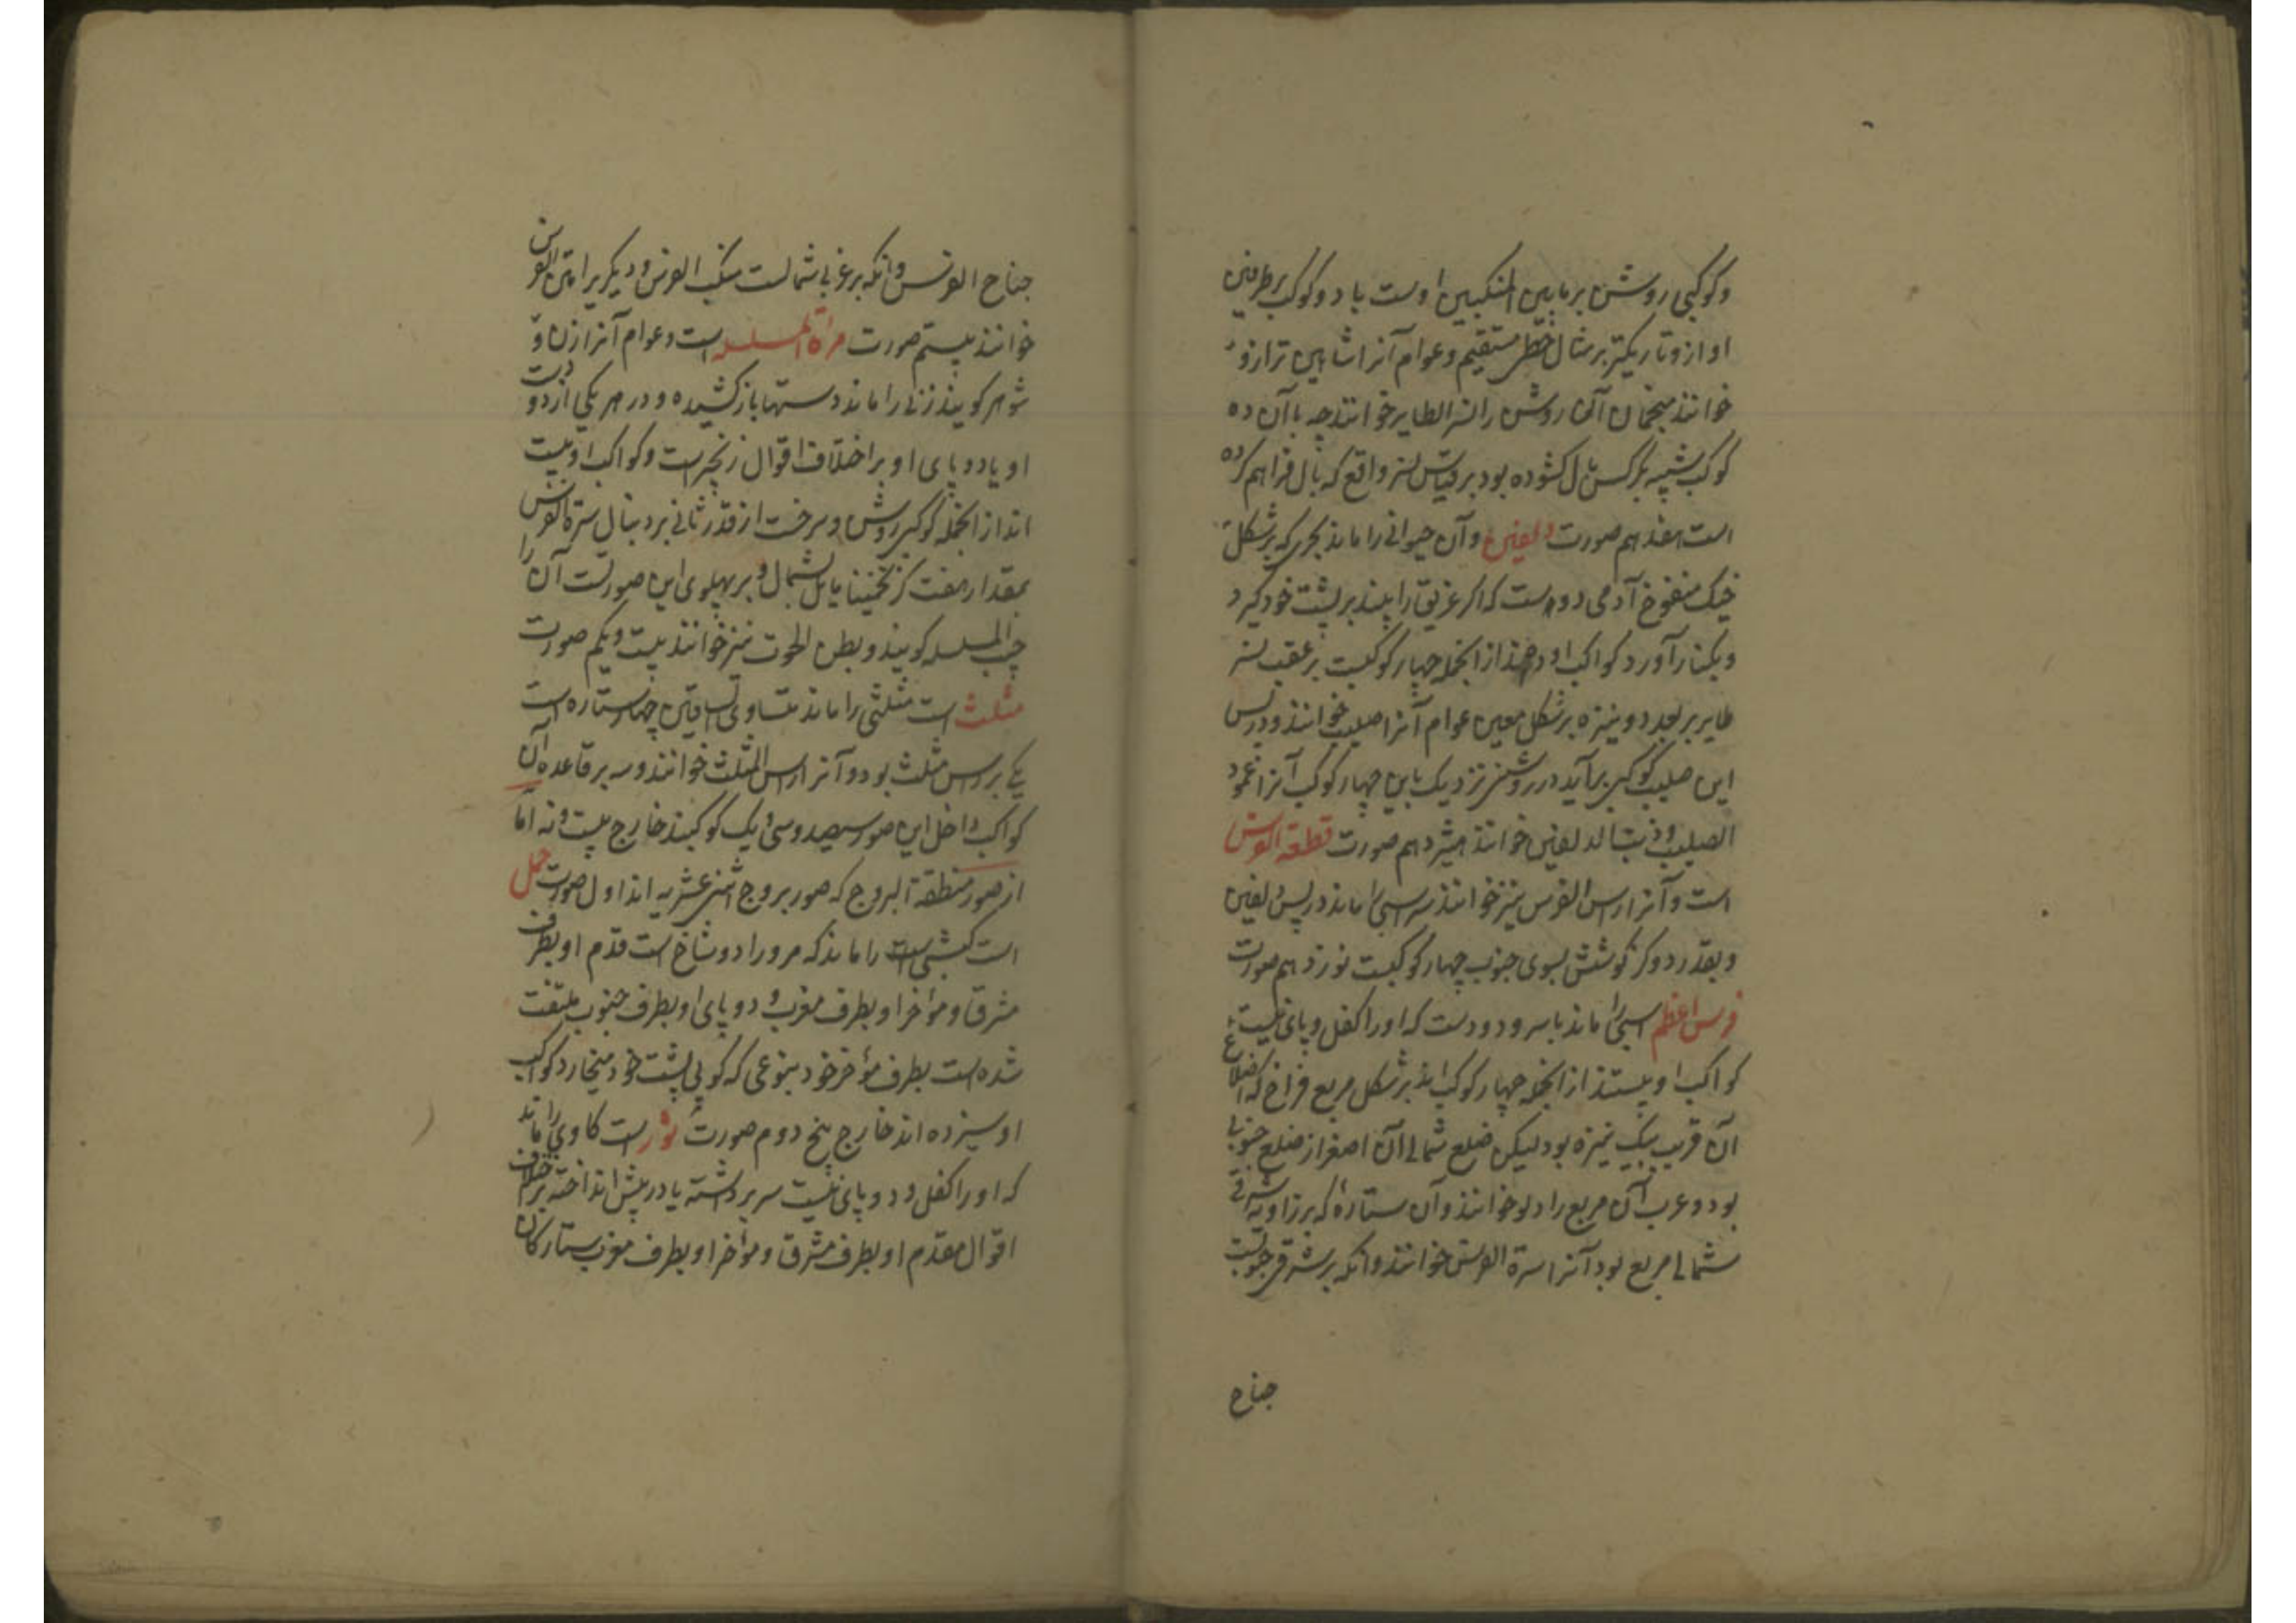 وکوکبی روشن بر مابین المنکبین اوست با دو کوکب بر طرفین
او ازو تاریکتر بر مثال خط مستقیم و عوام آنرا شاهین ترازو
خوانند منجمان آن روشن را نسر الطایر خوانند چه با آن ده
کوکب شبیه بکرکس بال کشوده بود بر قیاس نسر واقع که بال فراهم کرده
است هفدهم صورت دلفین و آن حیوانی را ماند بحری که بر شکل
خیک منفوخ آدمی دوست که اگر غریق را بیند بر پشت خود کیرد
و بکنار آورد کواکب او دهند از انجمله چهار کوکبست بر عقب نسر
طایر بر بعد دو نیزه بر شکل معین عوام آنرا صلیب خوانند و در پس
این صلیب کوکبی برآید در روشنی نزدیک باین چهار کوکب آنرا عمود
الصلیب و ذنب الدلفین خوانند هیژدهم صورت قطعة الفرس
است و آنرا راس الفرس نیز خوانند سر اسبی را ماند در پس دلفین
و بقدر دو کز کوشش بسوی جنوب چهار کوکبست نوزدهم صورت
فرس اعظم اسبی را ماند با سر و دو دست که او را کفل و پای نیست
کواکب او بیستند از انجمله چهار کوکب اند بر شکل مربع فراخ که اضلاع
آن قریب بیک نیزه بود لیکن ضلع شمالی آن اصغر از ضلع جنوبی
بود و عرب آن مربع را دلو خوانند و آن ستارهٔ که بر زاویه شرقی
شمالی مربع بود آنرا سرة الفرس خوانند و آنکه بر شرقی جنوبیت
جناح
جناح الفرس و آنکه بر غربی شمالست منکب الفرس و دیکر یرا متن الفرس
خوانند بیستم صورت مراة المسلسله است و عوام آنرا زن و
شوهر کویند زنی را ماند دستها باز کشیده و در هر یکی از دو دست
او یا دو پای او بر اختلاف اقوال زنجیر است و کواکب او بیست
اند از انجمله کوکبی روشن و سرخست از قدر ثانی بر دنبال سرة الفرس
بمقدار هفت کز تخمینا مایل بشمال و بر پهلوی این صورتست آن را
جنب المسلسله کویند و بطن الحوت نیز خوانند بیست و یکم صورت
مثلث است مثلثی را ماند متساوی الساقین چهار ستاره است
یکی بر راس مثلث بود و آنرا راس المثلث خوانند و سه بر قاعده آن
کواکب داخل این صور سیصد و سی و یک کوکبند خارج بیست و نه اما
از صور منطقة البروج که صور بروج اثنی عشریه اند اول صورت حمل
است کبشی است را ماند که مر و را دو شاخ است قدم او بطرف
مشرق و مؤخر او بطرف مغرب و دو پای او بطرف جنوب ملتفت
شده است بطرف مؤخر خود بنوعی که کویی پشت خود میخارد کواکب
او سیزده اند خارج پنج دوم صورت ثور است کاوی را ماند
که او را کفل و دو پای نیست سر بر داشته یا در پیش انداخته بر اختلاف
اقوال مقدم او بطرف مشرق و مؤخر او بطرف مغرب ستارکان